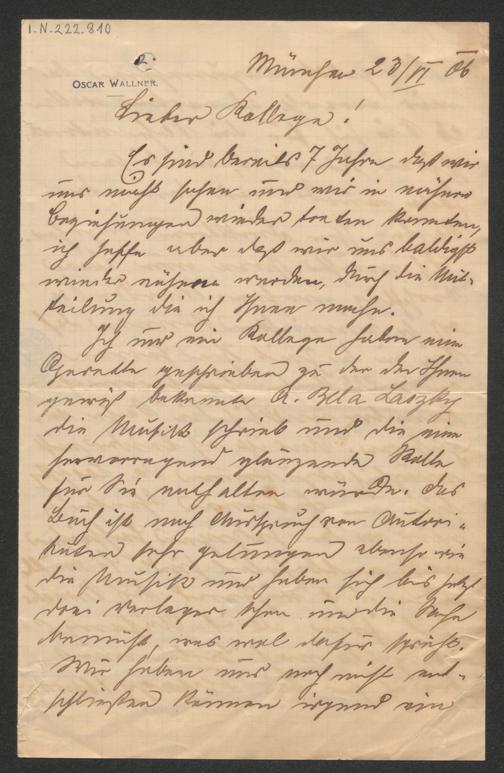 I.N.222.810
OSCAR WALLNER.
München 23/VI 06
Lieber Kollege!
Es sind bereits 7 Jahre daß wir
uns nicht sahen und wir in nähere
Beziehungen wieder treten konnten,
ich hoffe aber daß wir uns baldigst
wieder nähern werden, durch die Mit-
teilung die ich Ihnen mache.
Ich und ein Kollege haben eine
Operette geschrieben zu der der Ihnen
gewiß bekannte A. Bela Laszky
die Musik schrieb und die eine
hervorragend glänzende Rolle
für Sie enthalten würde. Das
Buch ist nach Ausspruch von Autori-
täten sehr gelungen ebenso wie
die Musik und haben sich bis jetzt
drei Verleger schon um die Sache
bemüht, was wol dafür spricht.
Wir haben uns noch nicht ent-
schließen können irgend ein